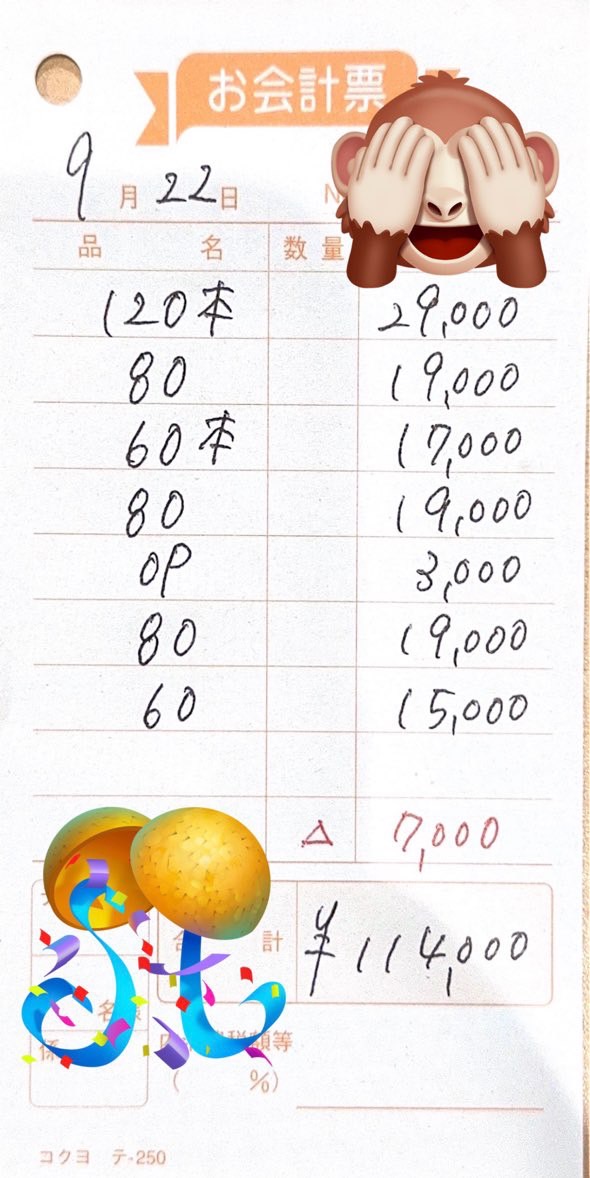 お会計票
9月22日
品 名 数量
120本 29,000
80 19,000
60本 17,000
80 19,000
OP 3,000
80 19,000
60 15,000
△ 7,000
合計 ¥114,000
名様
係
税額等
( %)
コクヨ テ-250